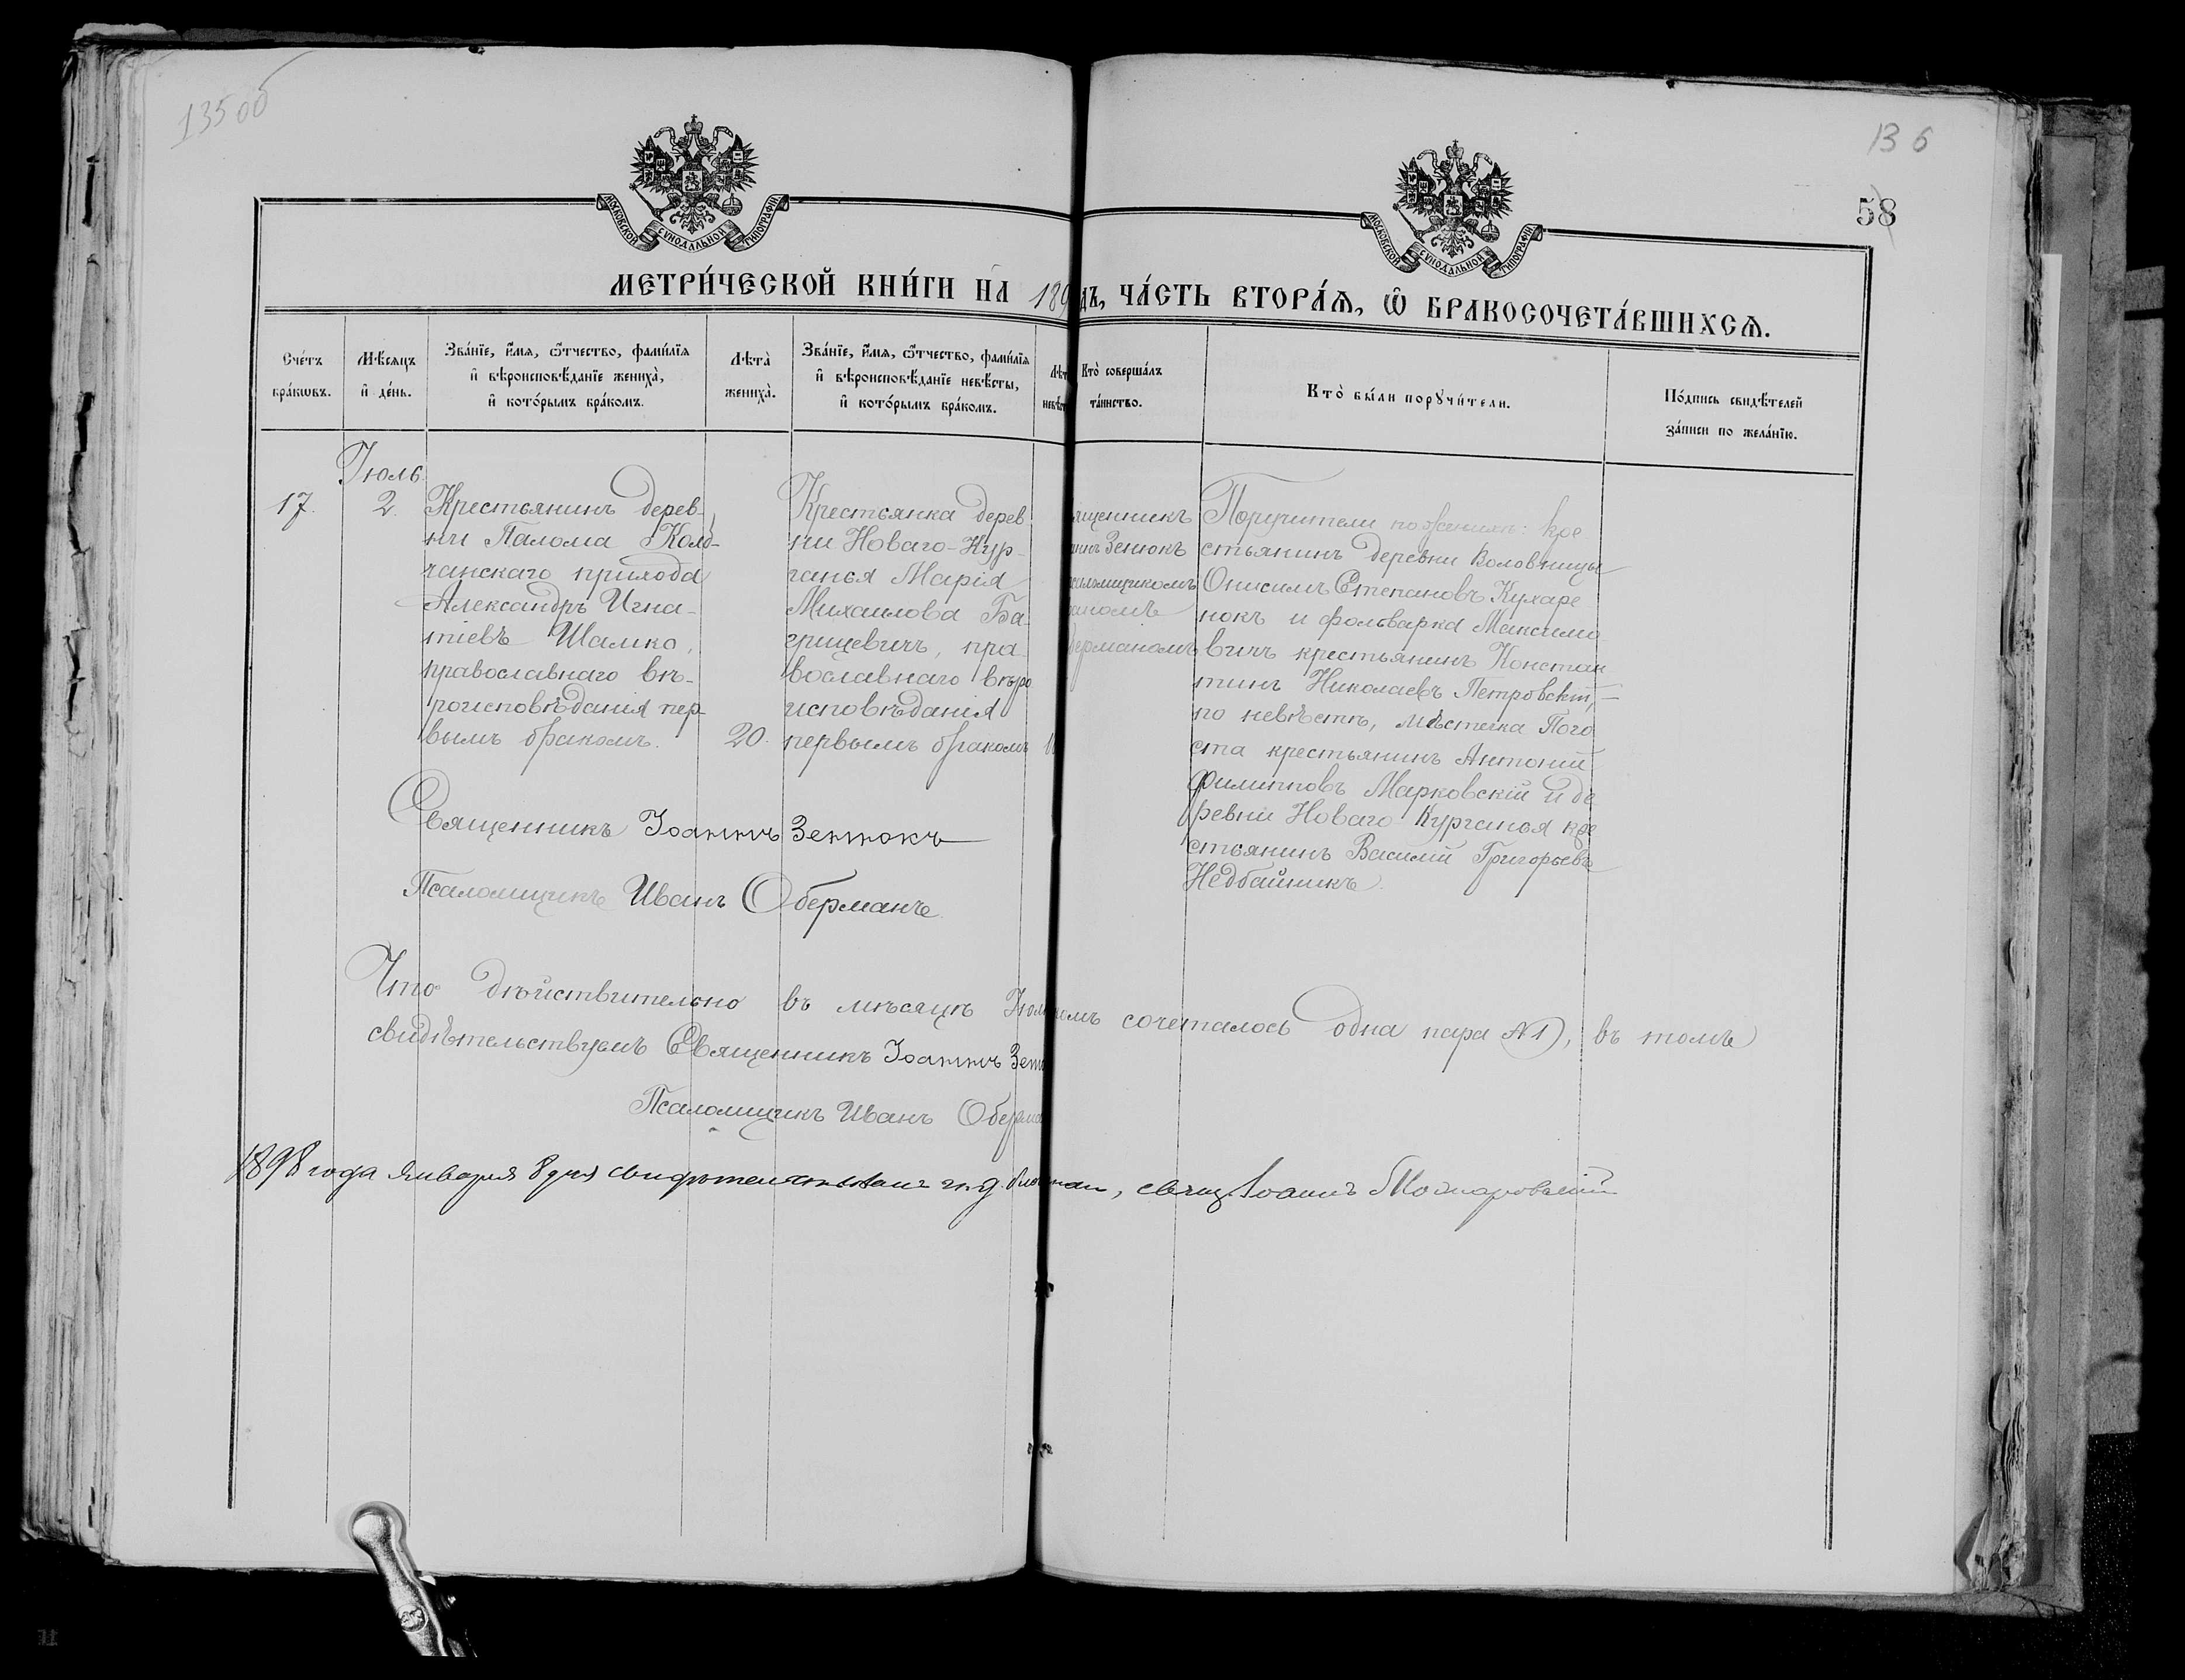 135 об
136
58
МОСКОВСКОЙ СѴНОДАЛЬНОЙ ТИПОГРАФІИ
МОСКОВСКОЙ СѴНОДАЛЬНОЙ ТИПОГРАФІИ
МЕТРИ́ЧЕСКОЙ КНИ́ГИ НА 189 дъ, ЧА́СТЬ ВТОРА́Ѧ, Ѽ БРАКОСОЧЕТА́ВШИХСѦ.
Сче́тъ бра́кѡвъ.
Мѣ́сяцъ и҆ де́нь.
Зва́нїе, и҆́мѧ, ѻ҆́тчество, фами́лїѧ и҆ вѣроисповѣ́данїе жениха̀, и҆ кото́рымъ бра́комъ.
Лѣ́та жениха̀.
Зва́нїе, и҆́мѧ, ѻ҆́тчество, фами́лїѧ и҆ вѣроисповѣ́данїе невѣ́сты, и҆ кото́рымъ бра́комъ.
Лѣт невѣс
Кто̀ соверша́лъ та́инство.
Кто̀ бы́ли порꙋчи́тели.
По́дпись свидѣ́телей за́писи по жела́нїю.
Іюль.
17.
2.
Крестьянинъ дерев-
ни Палома Колб-
чанскаго прихода
Александръ Игна-
тіевъ Шамко,
православнаго вѣ-
роисповѣданія пер
вымъ бракомъ.
20.
Крестьянка дерев
ни Новаго-Кур-
ганья Марія
Михаилова Ба-
грицевичъ, пра-
вославнаго вѣро
исповѣданія
первымъ бракомъ
ященникъ
ннъ Зенюкъ
саломщикомъ
берманомъ
Поручители по женихѣ: кре
стьянинъ деревни Воловницы
Онисимъ Степановъ Кухаре
нокъ и фольварка Максимо
вичъ крестьянинъ Констан
тинъ Николаевъ Петровскій,—
по невѣстѣ, мѣстечка Пого
ста крестьянинъ Антоній
Филипповъ Марковскій и де
ревни Новаго Курганья кре
стьянинъ Василій Григорьевъ
Недбайникъ.
Священникъ Іоаннъ Зенюкъ
Псаломщикъ Иванъ Оберманъ.
Что дѣйствительно въ мѣсяцѣ Іюл комъ сочеталось одна пара №1), въ томъ
свидѣтельствуемъ Священникъ Іоаннъ Зен
Псаломщикъ Иванъ Оберма
1898 года Января 8 дня свидѣтельствовалъ и. д. свящ. Іоаннъ